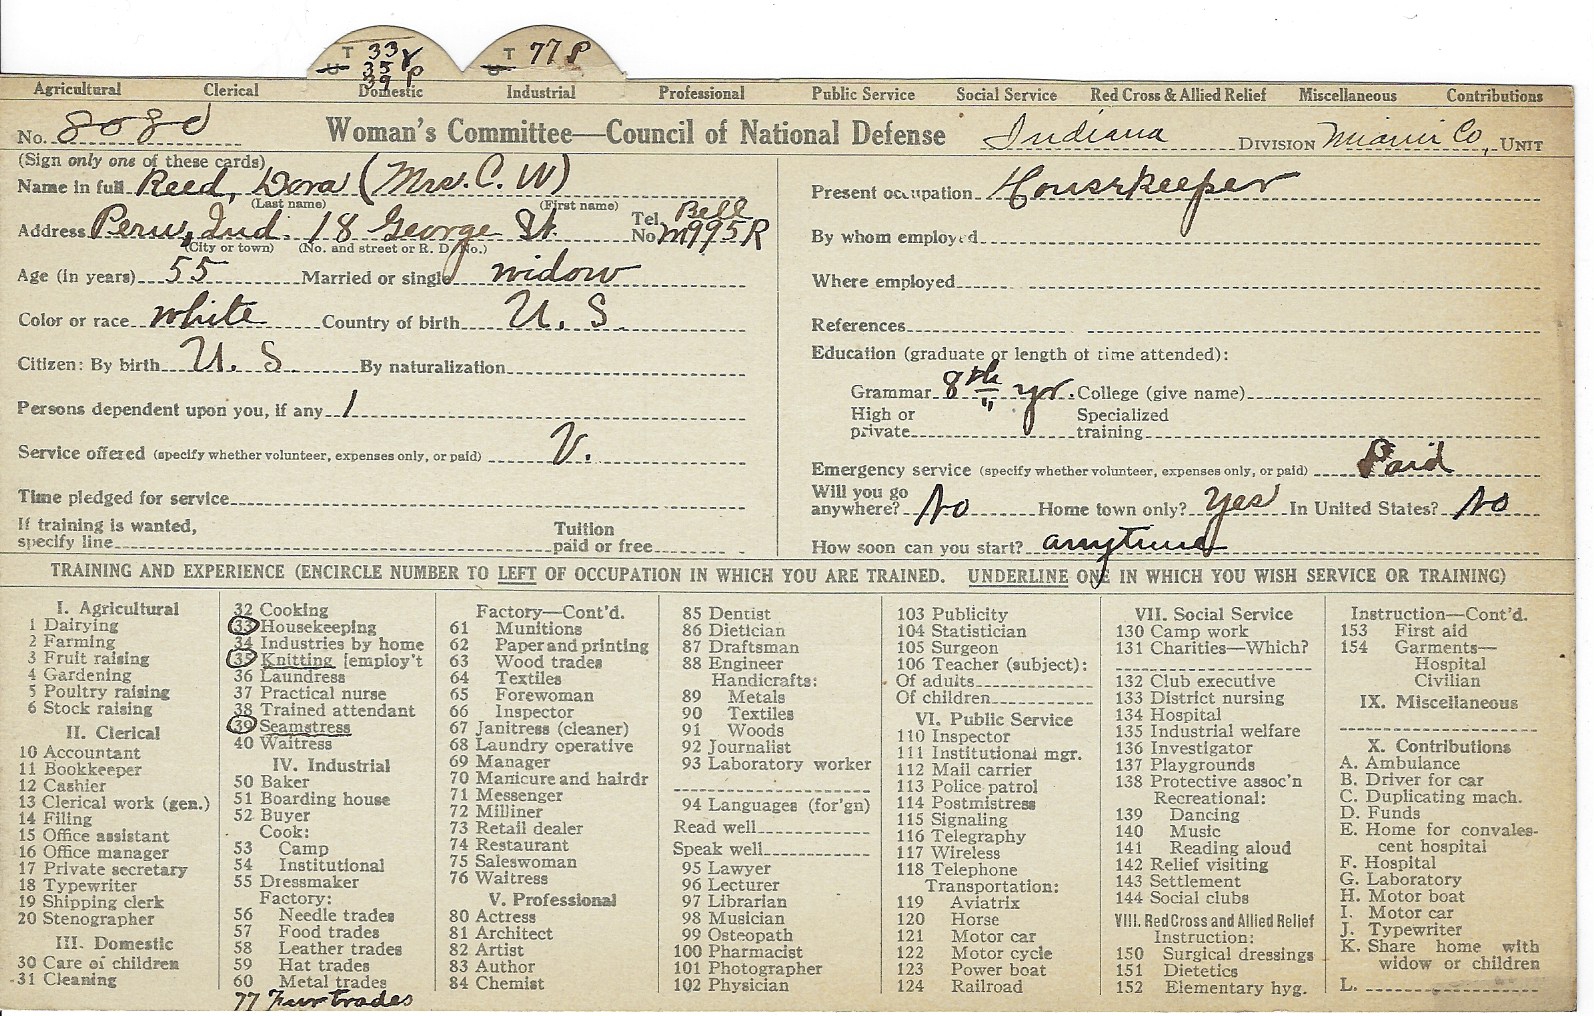 T 33 γ
U 35 P
39 P
T 77 P
U
Agricultural Clerical Domestic Industrial Professional Public Service Social Service Red Cross & Allied Relief Miscellaneous Contributions
No. 8080 Woman's Committee—Council of National Defense Indiana DIVISION Miami Co, UNIT
(Sign only one of these cards)
Name in full Reed, Dora (Mrs. C. W)
(Last name) (First name)
Address Peru, Ind. 18 George St. Tel. No. Bell M995R
(City or town) (No. and street or R. D. No.)
Age (in years) 55 Married or single widow
Color or race white Country of birth U. S.
Citizen: By birth U. S. By naturalization
Persons dependent upon you, if any 1
Service offered (specify whether volunteer, expenses only, or paid) V.
Time pledged for service
If training is wanted,
specify line Tuition paid or free
Present occupation Housekeeper
By whom employed
Where employed
References
Education (graduate or length of time attended):
Grammar 8th yr. College (give name)
High or private Specialized training
Emergency service (specify whether volunteer, expenses only, or paid) Paid
Will you go anywhere? No Home town only? Yes In United States? No
How soon can you start? anytime
TRAINING AND EXPERIENCE (ENCIRCLE NUMBER TO LEFT OF OCCUPATION IN WHICH YOU ARE TRAINED. UNDERLINE ONE IN WHICH YOU WISH SERVICE OR TRAINING)
I. Agricultural
1 Dairying
2 Farming
3 Fruit raising
4 Gardening
5 Poultry raising
6 Stock raising
II. Clerical
10 Accountant
11 Bookkeeper
12 Cashier
13 Clerical work (gen.)
14 Filing
15 Office assistant
16 Office manager
17 Private secretary
18 Typewriter
19 Shipping clerk
20 Stenographer
III. Domestic
30 Care of children
31 Cleaning
32 Cooking
33 Housekeeping
34 Industries by home
35 Knitting [employ't
36 Laundress
37 Practical nurse
38 Trained attendant
39 Seamstress
40 Waitress
IV. Industrial
50 Baker
51 Boarding house
52 Buyer
Cook:
53 Camp
54 Institutional
55 Dressmaker
Factory:
56 Needle trades
57 Food trades
58 Leather trades
59 Hat trades
60 Metal trades
77 Fur trades
Factory—Cont'd.
61 Munitions
62 Paper and printing
63 Wood trades
64 Textiles
65 Forewoman
66 Inspector
67 Janitress (cleaner)
68 Laundry operative
69 Manager
70 Manicure and hairdr
71 Messenger
72 Milliner
73 Retail dealer
74 Restaurant
75 Saleswoman
76 Waitress
V. Professional
80 Actress
81 Architect
82 Artist
83 Author
84 Chemist
85 Dentist
86 Dietician
87 Draftsman
88 Engineer
Handicrafts:
89 Metals
90 Textiles
91 Woods
92 Journalist
93 Laboratory worker
94 Languages (for'gn)
Read well
Speak well
95 Lawyer
96 Lecturer
97 Librarian
98 Musician
99 Osteopath
100 Pharmacist
101 Photographer
102 Physician
103 Publicity
104 Statistician
105 Surgeon
106 Teacher (subject):
Of adults
Of children
VI. Public Service
110 Inspector
111 Institutional mgr.
112 Mail carrier
113 Police patrol
114 Postmistress
115 Signaling
116 Telegraphy
117 Wireless
118 Telephone
Transportation:
119 Aviatrix
120 Horse
121 Motor car
122 Motor cycle
123 Power boat
124 Railroad
VII. Social Service
130 Camp work
131 Charities—Which?
132 Club executive
133 District nursing
134 Hospital
135 Industrial welfare
136 Investigator
137 Playgrounds
138 Protective assoc'n
Recreational:
139 Dancing
140 Music
141 Reading aloud
142 Relief visiting
143 Settlement
144 Social clubs
VIII. Red Cross and Allied Relief
Instruction:
150 Surgical dressings
151 Dietetics
152 Elementary hyg.
Instruction—Cont'd.
153 First aid
154 Garments—
Hospital
Civilian
IX. Miscellaneous
X. Contributions
A. Ambulance
B. Driver for car
C. Duplicating mach.
D. Funds
E. Home for convales-
cent hospital
F. Hospital
G. Laboratory
H. Motor boat
I. Motor car
J. Typewriter
K. Share home with
widow or children
L.